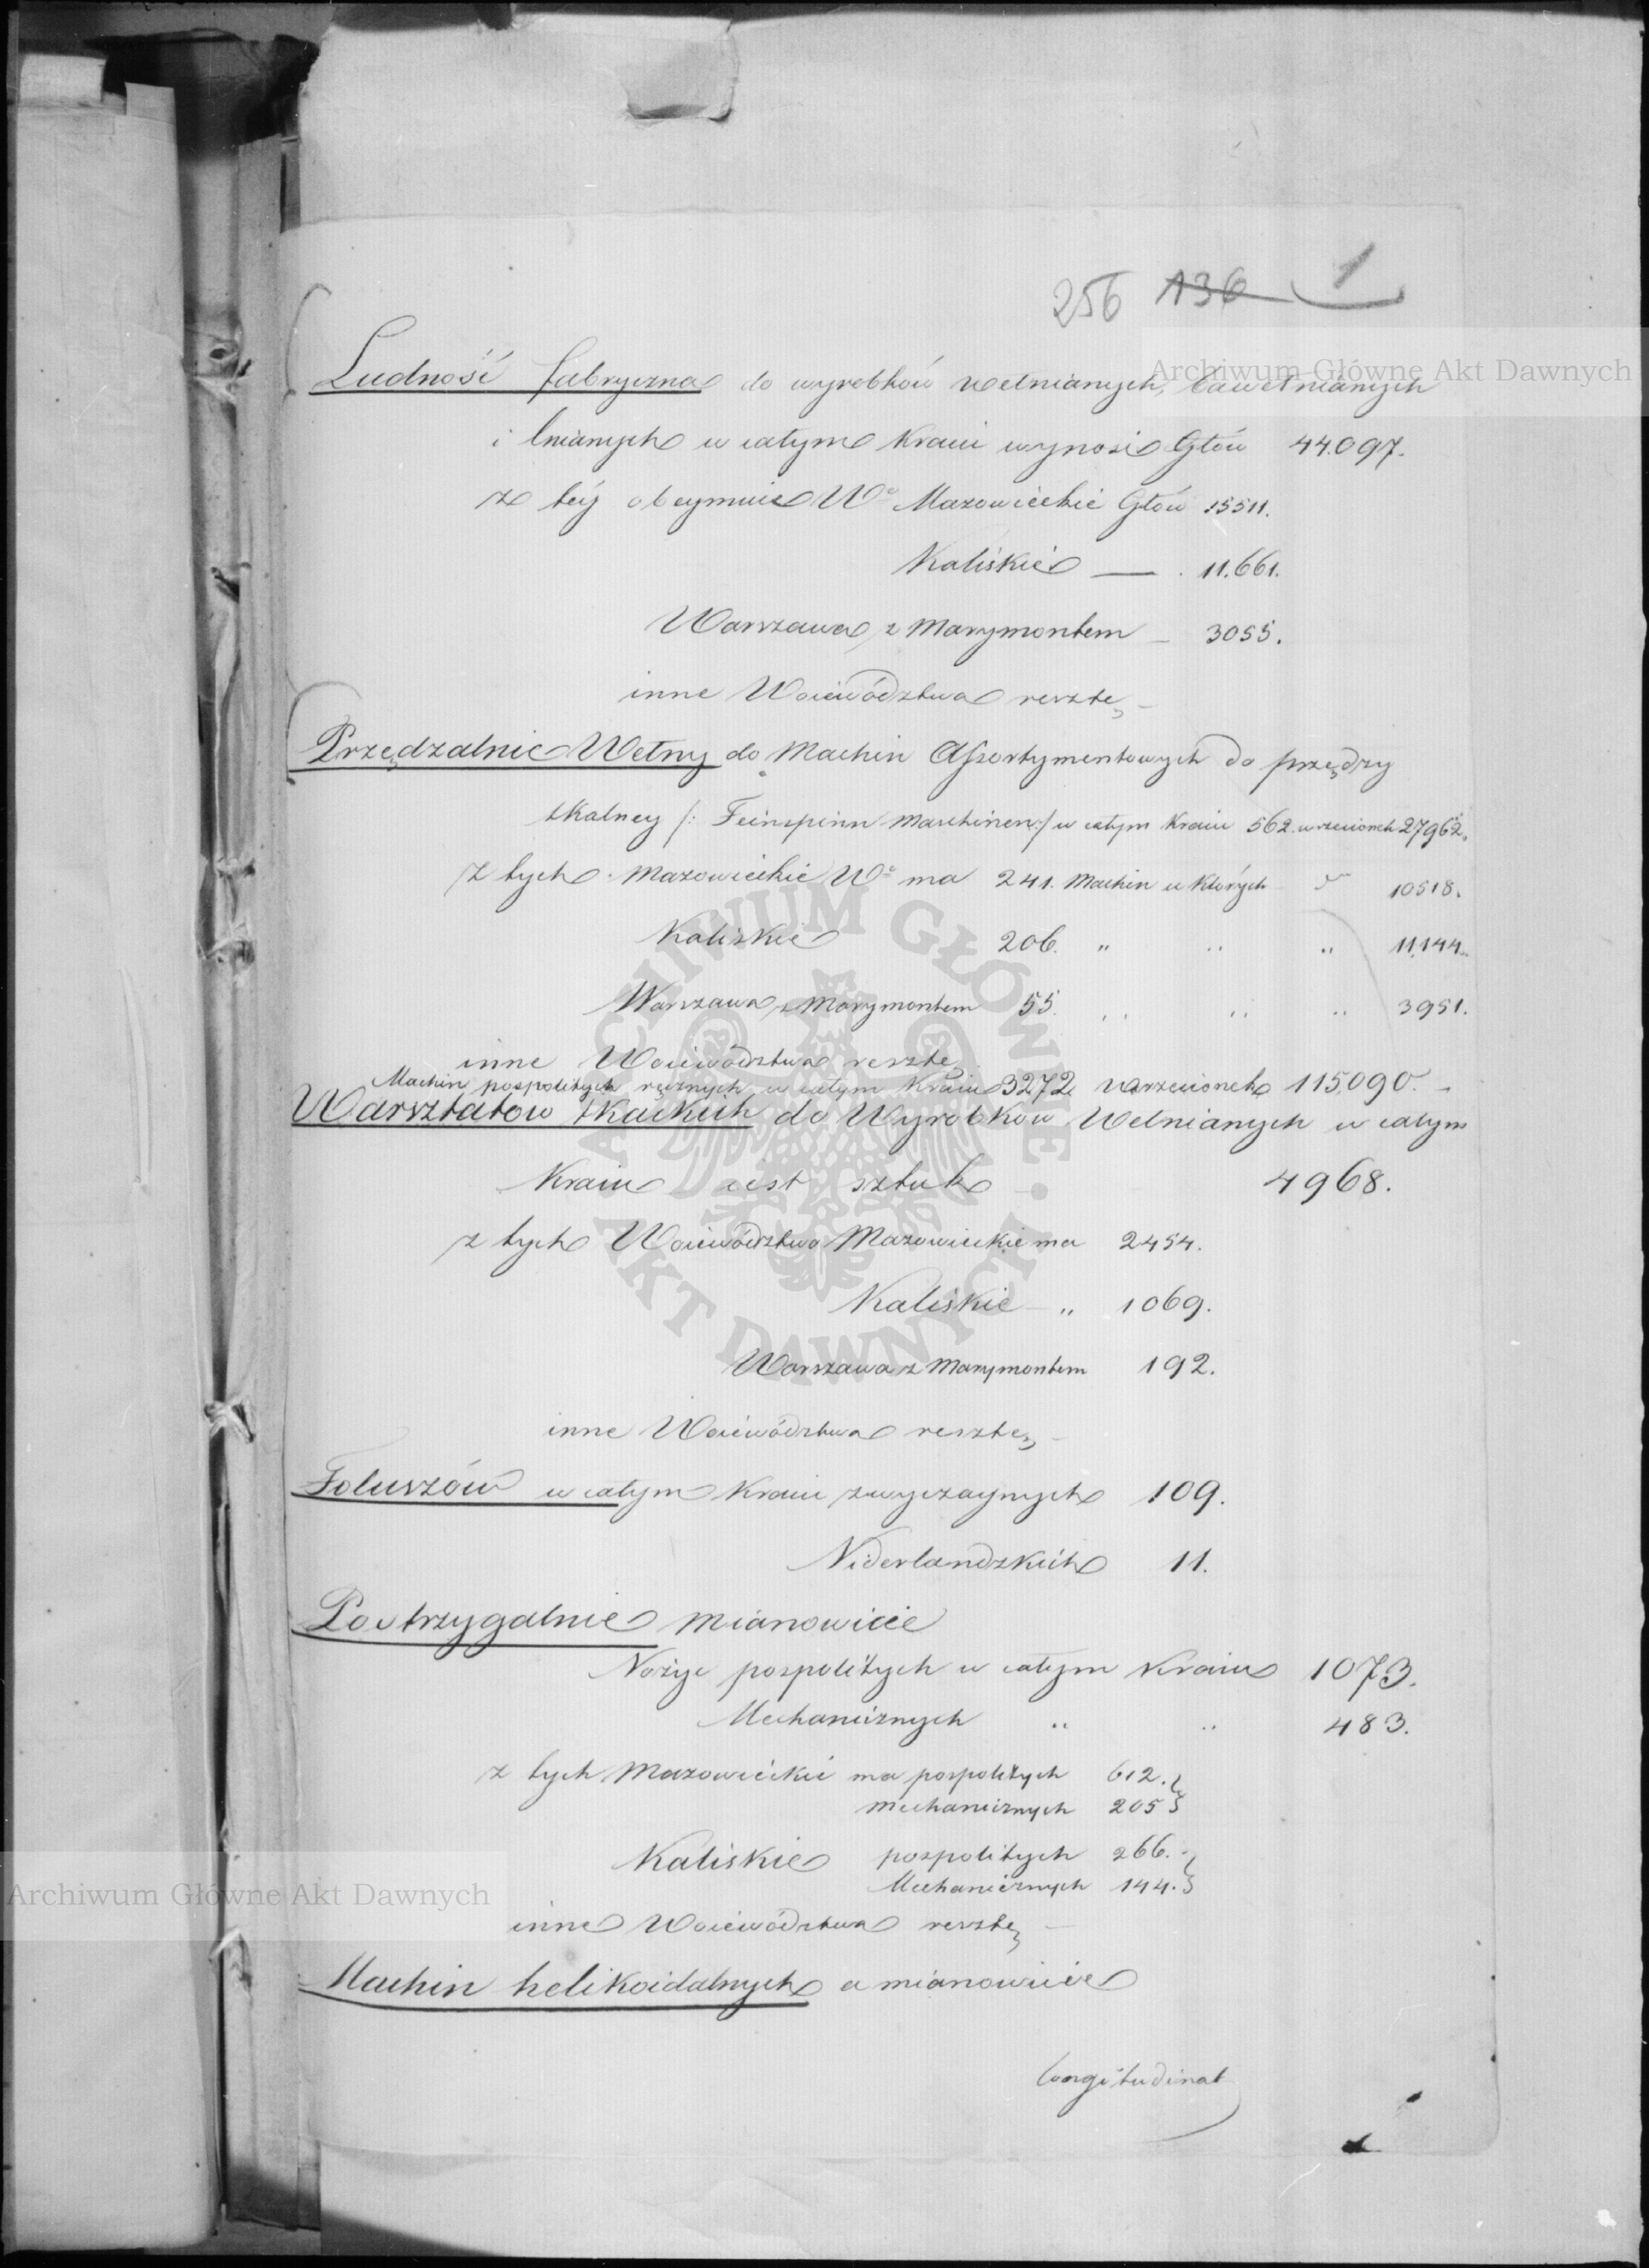 256 136 1
Archiwum Główne Akt Dawnych
Ludność fabryczna do wyrobków wełnianych, bawełnianych
i lnianych w całym Kraiu wynosi Głów 44.097.
z téy obeymuie Wo Mazowieckie Głów 15511.
Kaliskie — . 11.661.
Warszawa z Marymontem – 3055.
inne Woiewództwa resztę –
Przędzalnie Wełny do Machin Assortymentowych do przędzy
tkalney /: Feinspinn Maschinen :/ w całym Kraiu 562. wrzecionek 27962.
z tych Mazowieckie Wo ma 241. Machin w których " 10518.
Kaliskie 206. " " " 11,144.
Warszawa z Marymontem 55. " " " 3951.
inne Woiewództwa resztę
Machin pospolitych ręcznych w całym Kraiu 3272 wrzecionek 115,090. –
Warsztatów tkackich do Wyrobków Wełnianych w całym
Kraiu iest sztuk – 4968.
z tych Woiewództwo Mazowieckie ma 2454.
Kaliskie – " 1069.
Warszawa z Marymontem 192.
inne Woiewództwa resztę –
Foluszów w całym Kraiu zwyczaynych 109.
Niderlandzkich 11.
Postrzygalnie mianowicie
Nożyc pospolitych w całym Kraiu 1073.
Mechanicznych " " 483.
z tych Mazowieckie ma pospolitych 612.
mechanicznych 205
Kaliskie pospolitych 266.
Mechanicznych 144.
Archiwum Główne Akt Dawnych
inne Woiewództwa resztę –
Machin helikoidalnych a mianowicie
longitudinal
ARCHIWUM GŁÓWNE • AKT DAWNYCH •